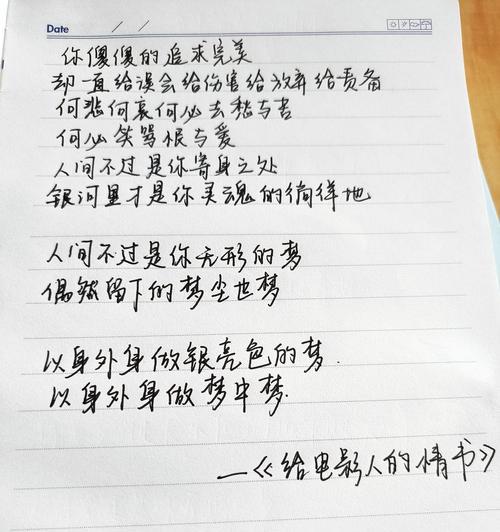 Date / /
你傻傻的追求完美
却一直给误会给伤害给放弃给责备
何悲何哀何必去愁与苦
何必笑骂恨与爱
人间不过是你寄身之处
银河里才是你灵魂的徜徉地
人间不过是你无形的梦
偶然留下的梦尘世梦
以身外身做银亮色的梦.
以身外身做梦中梦.
—《给电影人的情书》